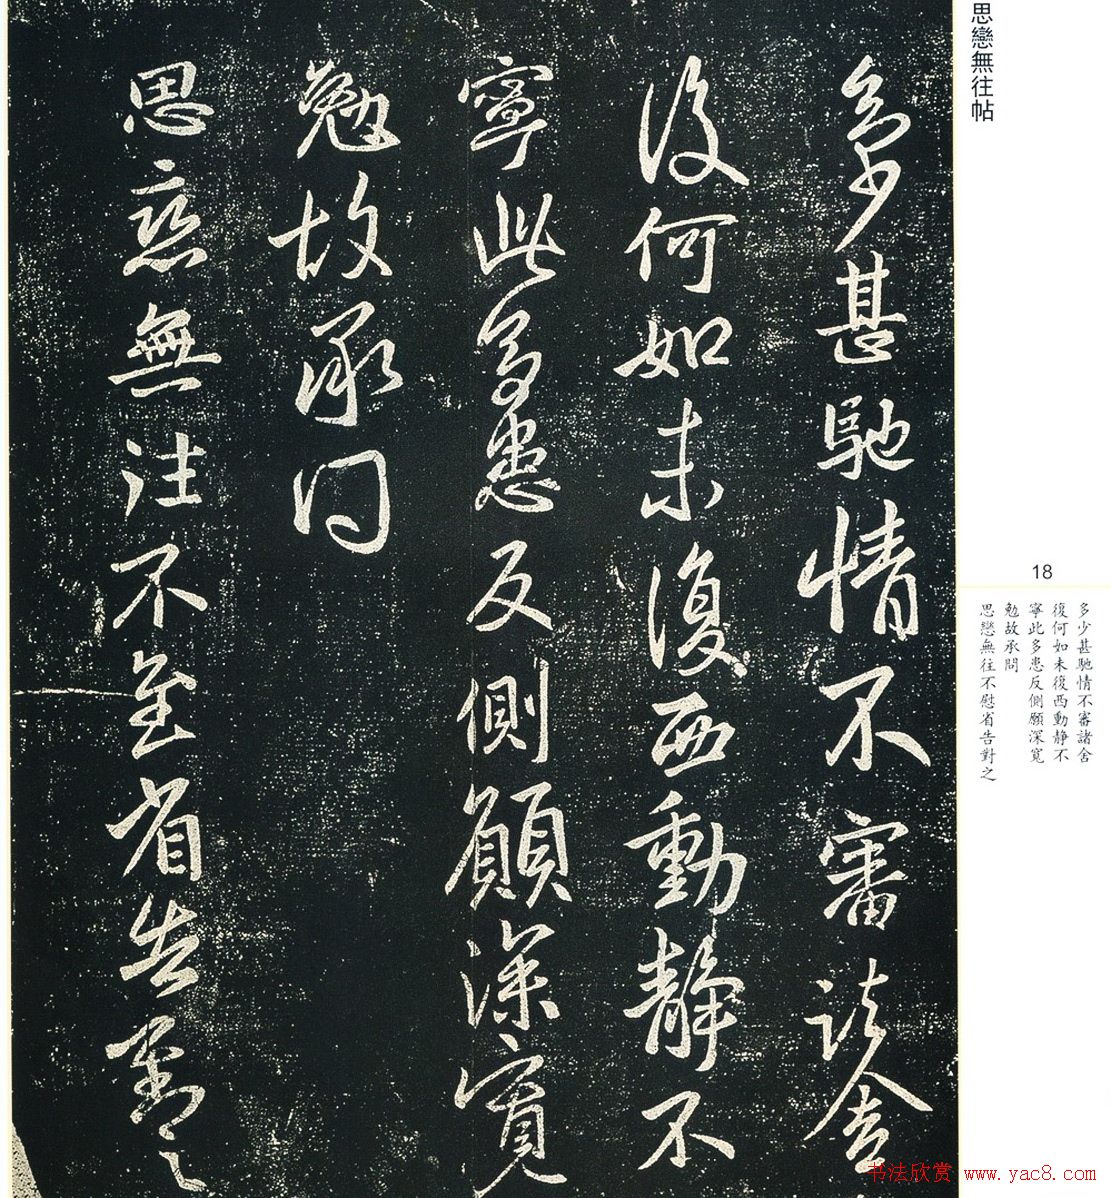 思戀無往帖
多少甚馳情不審諸舍
復何如未復西動靜不
寧此多患反側願深寬
勉故承問
思戀無往不至省告對之
18
多少甚馳情不審諸舍
復何如未復西動静不
寧此多患反側願深寬
勉故承問
思戀無往不慰省告對之
书法欣赏 www.yac8.com